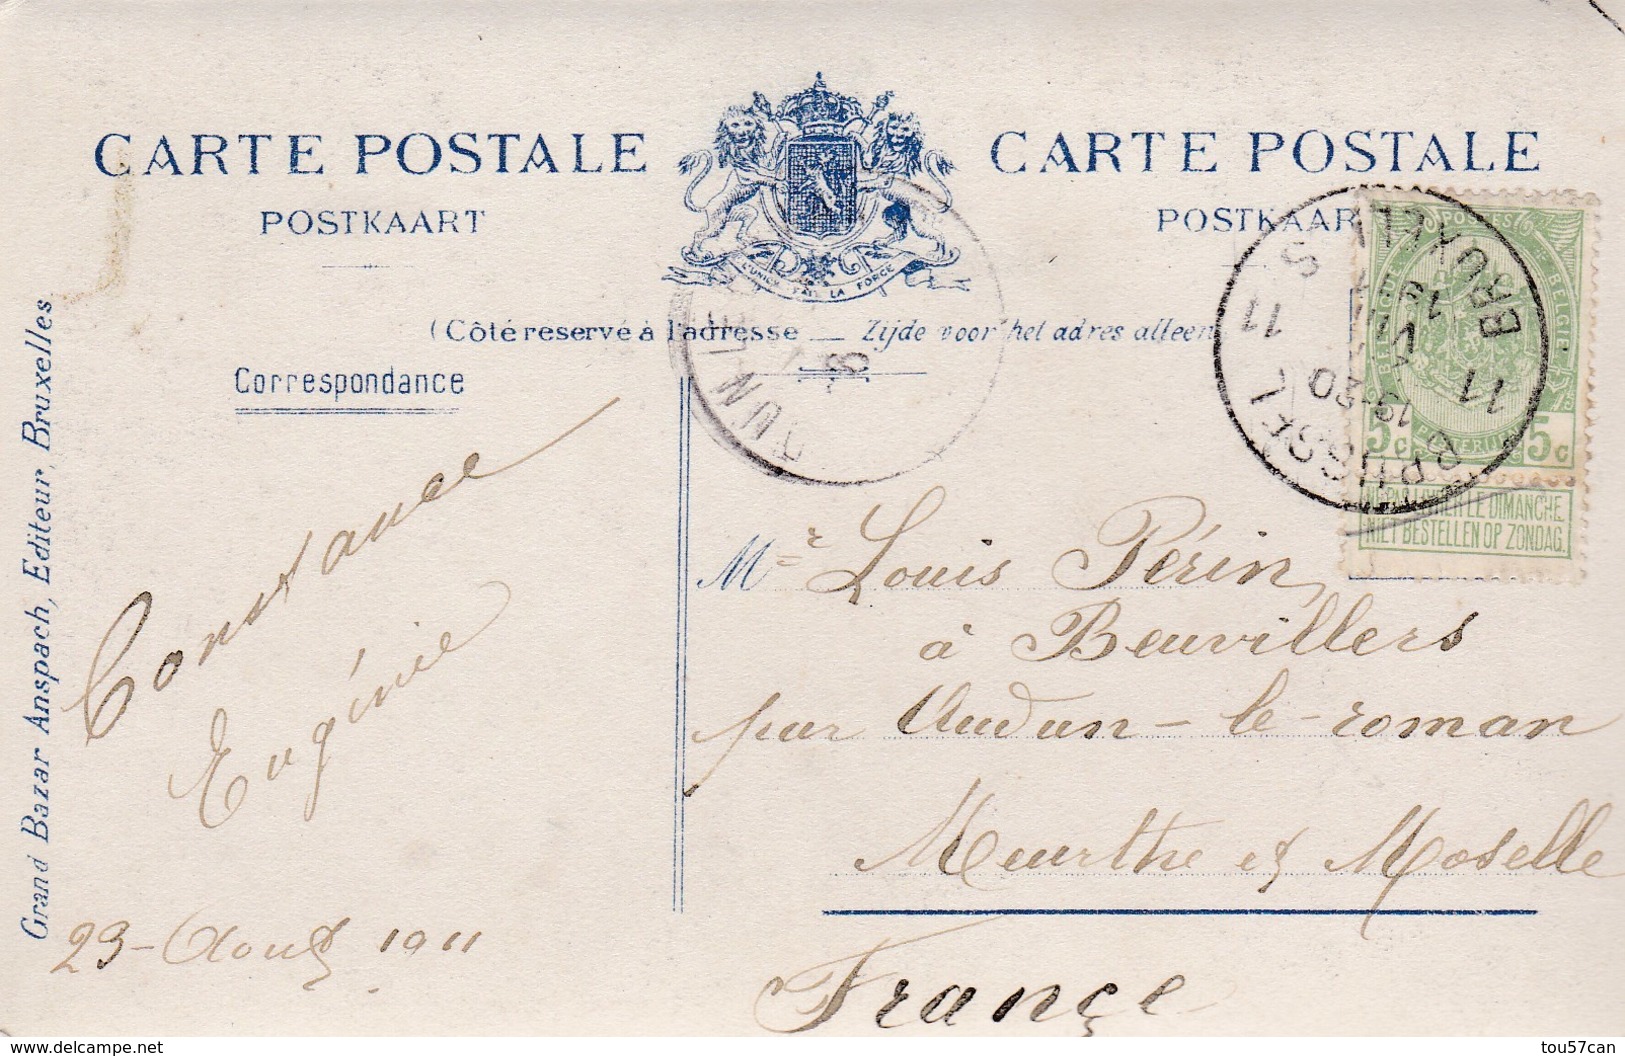 CARTE POSTALE
POSTKAART
L'UNION FAIT LA FORCE
CARTE POSTALE
POSTKAAR
(Côté réservé à l'adresse — Zijde voor het adres alleen
Correspondance
Grand Bazar Anspach, Editeur, Bruxelles
Constance
Eugénie
23 - Août 1911.
Mr Louis Périn
à Beuvillers
par Audun-le-roman
Meurthe et Moselle
France
BRUXELLES
11
VIII
19-20
11
BRUSSEL
POSTES
BELGIQUE
BELGIE
POSTERIJEN
5c 5c
NE PAS LIVRER LE DIMANCHE
NIET BESTELLEN OP ZONDAG.
www.delcampe.net
tou57can